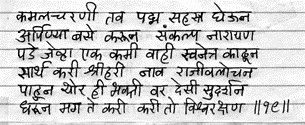 कमलचरणी तव पद्म सहस्र घेऊन
अर्पिण्या बसे करून संकल्प नारायण
पडे जेव्हा एक कमी वाही स्वनेत्र काढून
सार्थ करी श्रीहरी नाव राजीवलोचन
पाहून थोर ही भक्ती वर देसी सुदर्शन
धरून मग ते करी करी तो विश्वरक्षण ॥१९॥